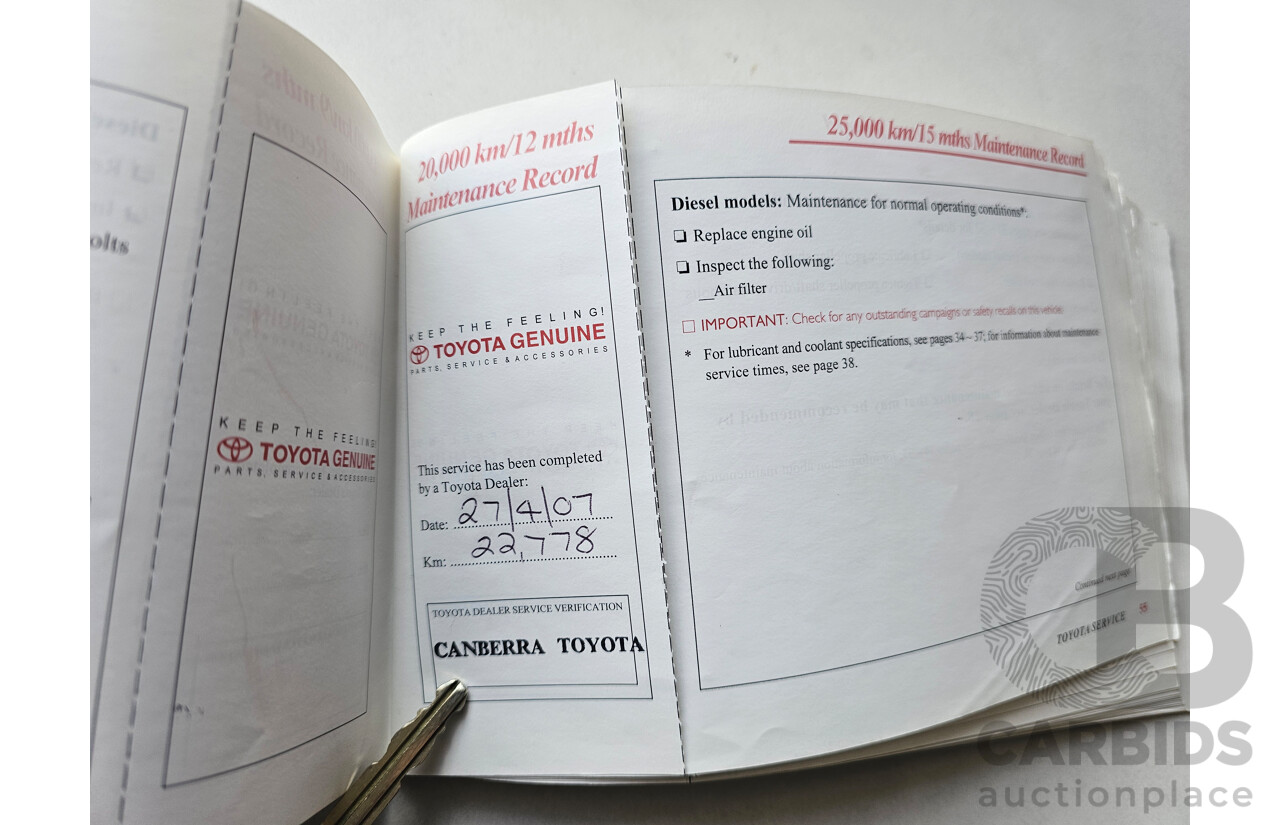 olts
KEEP THE FEELING!
TOYOTA GENUINE
PARTS, SERVICE & ACCESSORIES
20,000 km/12 mths
Maintenance Record
KEEP THE FEELING!
TOYOTA GENUINE
PARTS, SERVICE & ACCESSORIES
This service has been completed
by a Toyota Dealer:
Date: 27/4/07
Km: 22,778
TOYOTA DEALER SERVICE VERIFICATION
CANBERRA TOYOTA
25,000 km/15 mths Maintenance Record
Diesel models: Maintenance for normal operating conditions*:
❏ Replace engine oil
❏ Inspect the following:
__Air filter
□ IMPORTANT: Check for any outstanding campaigns or safety recalls on this vehicle.
* For lubricant and coolant specifications, see pages 34~37; for information about maintenance
service times, see page 38.
Continued next page
TOYOTA SERVICE
CB
CARBIDS
auctionplace